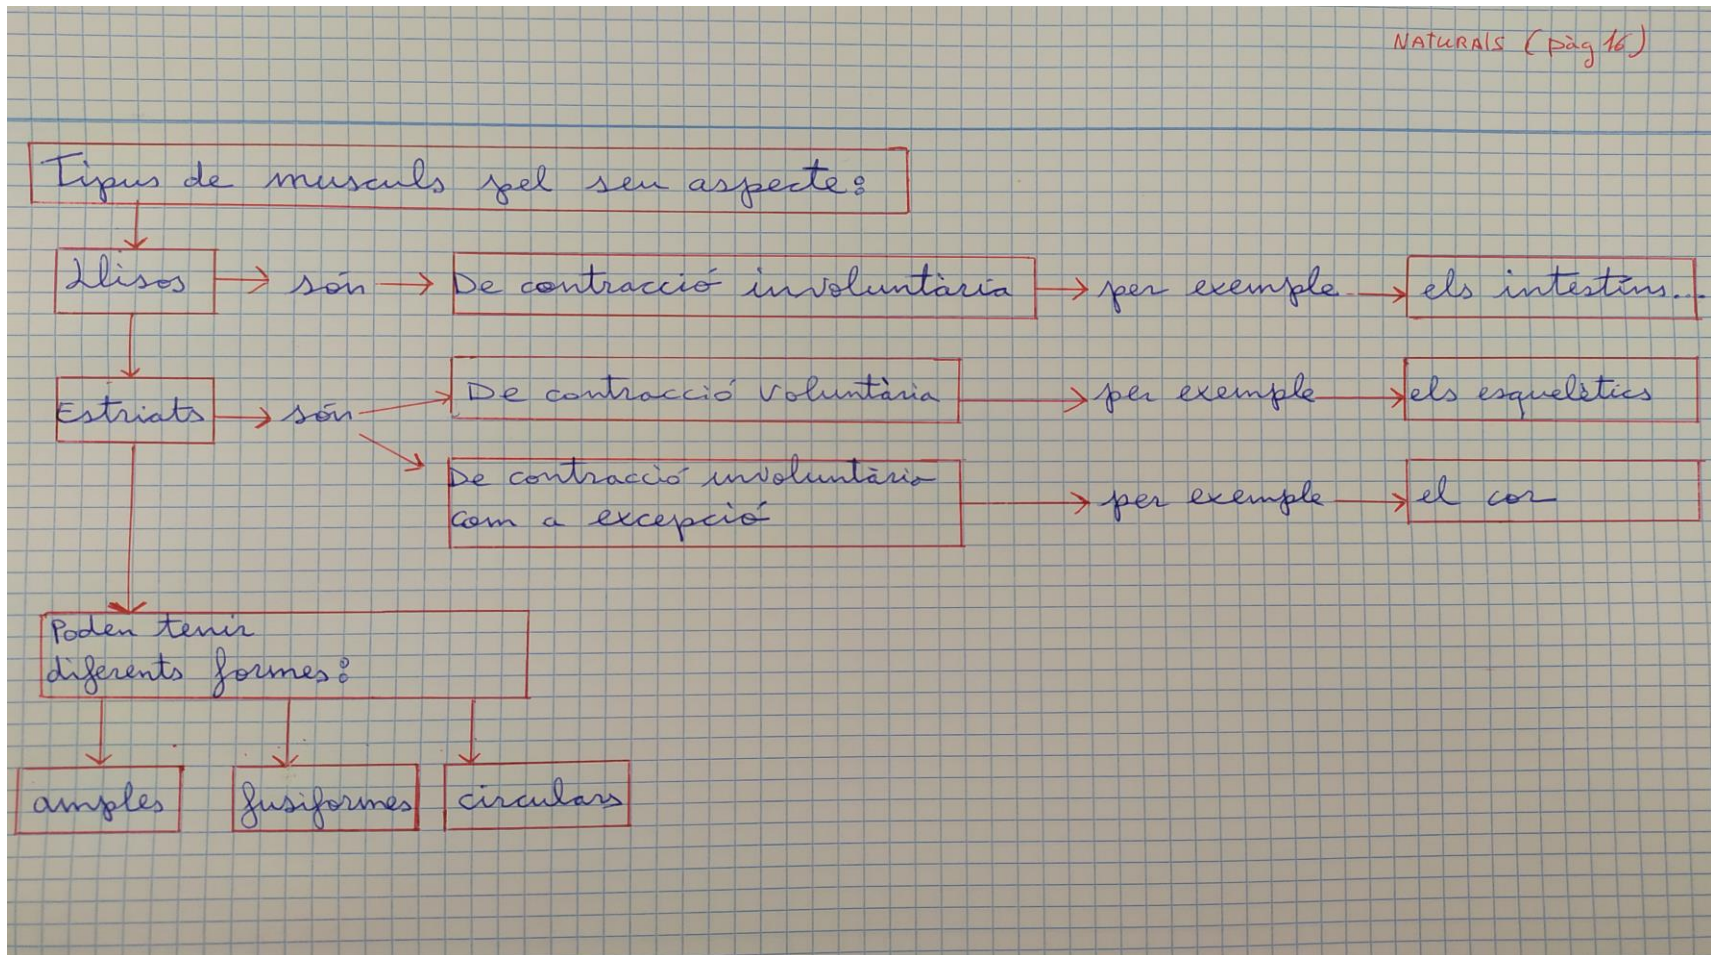 NATURALS (pàg 16)
Tipus de musculs pel seu aspecte:
Llisos són De contracció involuntària per exemple els intestins...
Estriats són De contracció voluntària per exemple els esquelètics
De contracció involuntària
com a excepció per exemple el cor
Poden tenir
diferents formes:
amples fusiformes circulars